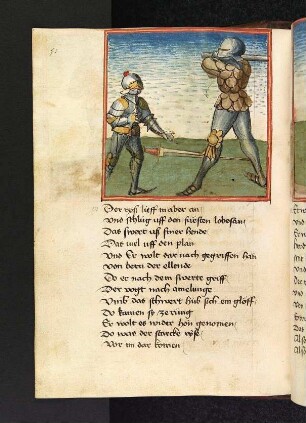 Der ryß lieff in aber an
Und schlug uff den fürsten lobesan
Das swert uß siner hende
Das viel uff den plan
Und Er wolt dar nach gegriffen han
Von bern der ellende
Do er nach dem swerte greiff
Der vogt nach amelunge
Umb das schwert hub sich ein
Do kamen sy
Er wolt es wider hon genomen
Do was der starcke ryse
Vor im dar komen